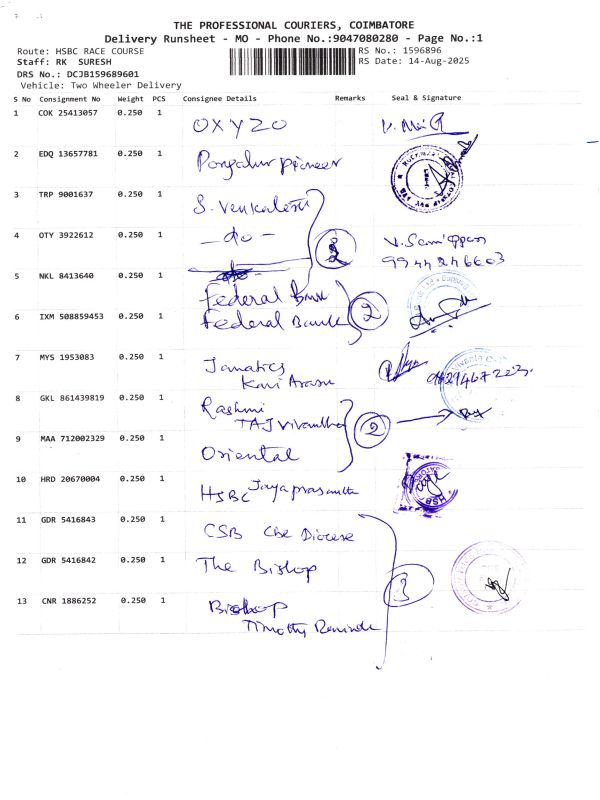 THE PROFESSIONAL COURIERS, COIMBATORE
Delivery Runsheet - MO - Phone No.:9047080280 - Page No.:1
Route: HSBC RACE COURSE
RS No.: 1596896
Staff: RK SURESH
RS Date: 14-Aug-2025
DRS No.: DCJB159689601
Vehicle: Two Wheeler Delivery
S No Consignment No Weight PCS Consignee Details Remarks Seal & Signature
1 COK 25413057 0.250 1 OXYZO
2 EDQ 13657781 0.250 1 Pongalur Pioneer
3 TRP 9001637 0.250 1 S. Venkatesh
4 OTY 3922612 0.250 1 - do - 2 V. Samippan
9944246603
5 NKL 8413640 0.250 1 Federal Bank
6 IXM 508859453 0.250 1 Federal Bank 2
7 MYS 1953083 0.250 1 Janatics
Kavi Arasu
8 GKL 861439819 0.250 1 Rashmi
TAJ Vivantha 2
9 MAA 712002329 0.250 1 Oriental
10 HRD 20670004 0.250 1 HSBC Jayaprasantha
HSBC
11 GDR 5416843 0.250 1 CSB Cbe Diocese
12 GDR 5416842 0.250 1 The Bishop 3
13 CNR 1886252 0.250 1 Bishop
Timothy Ravinder